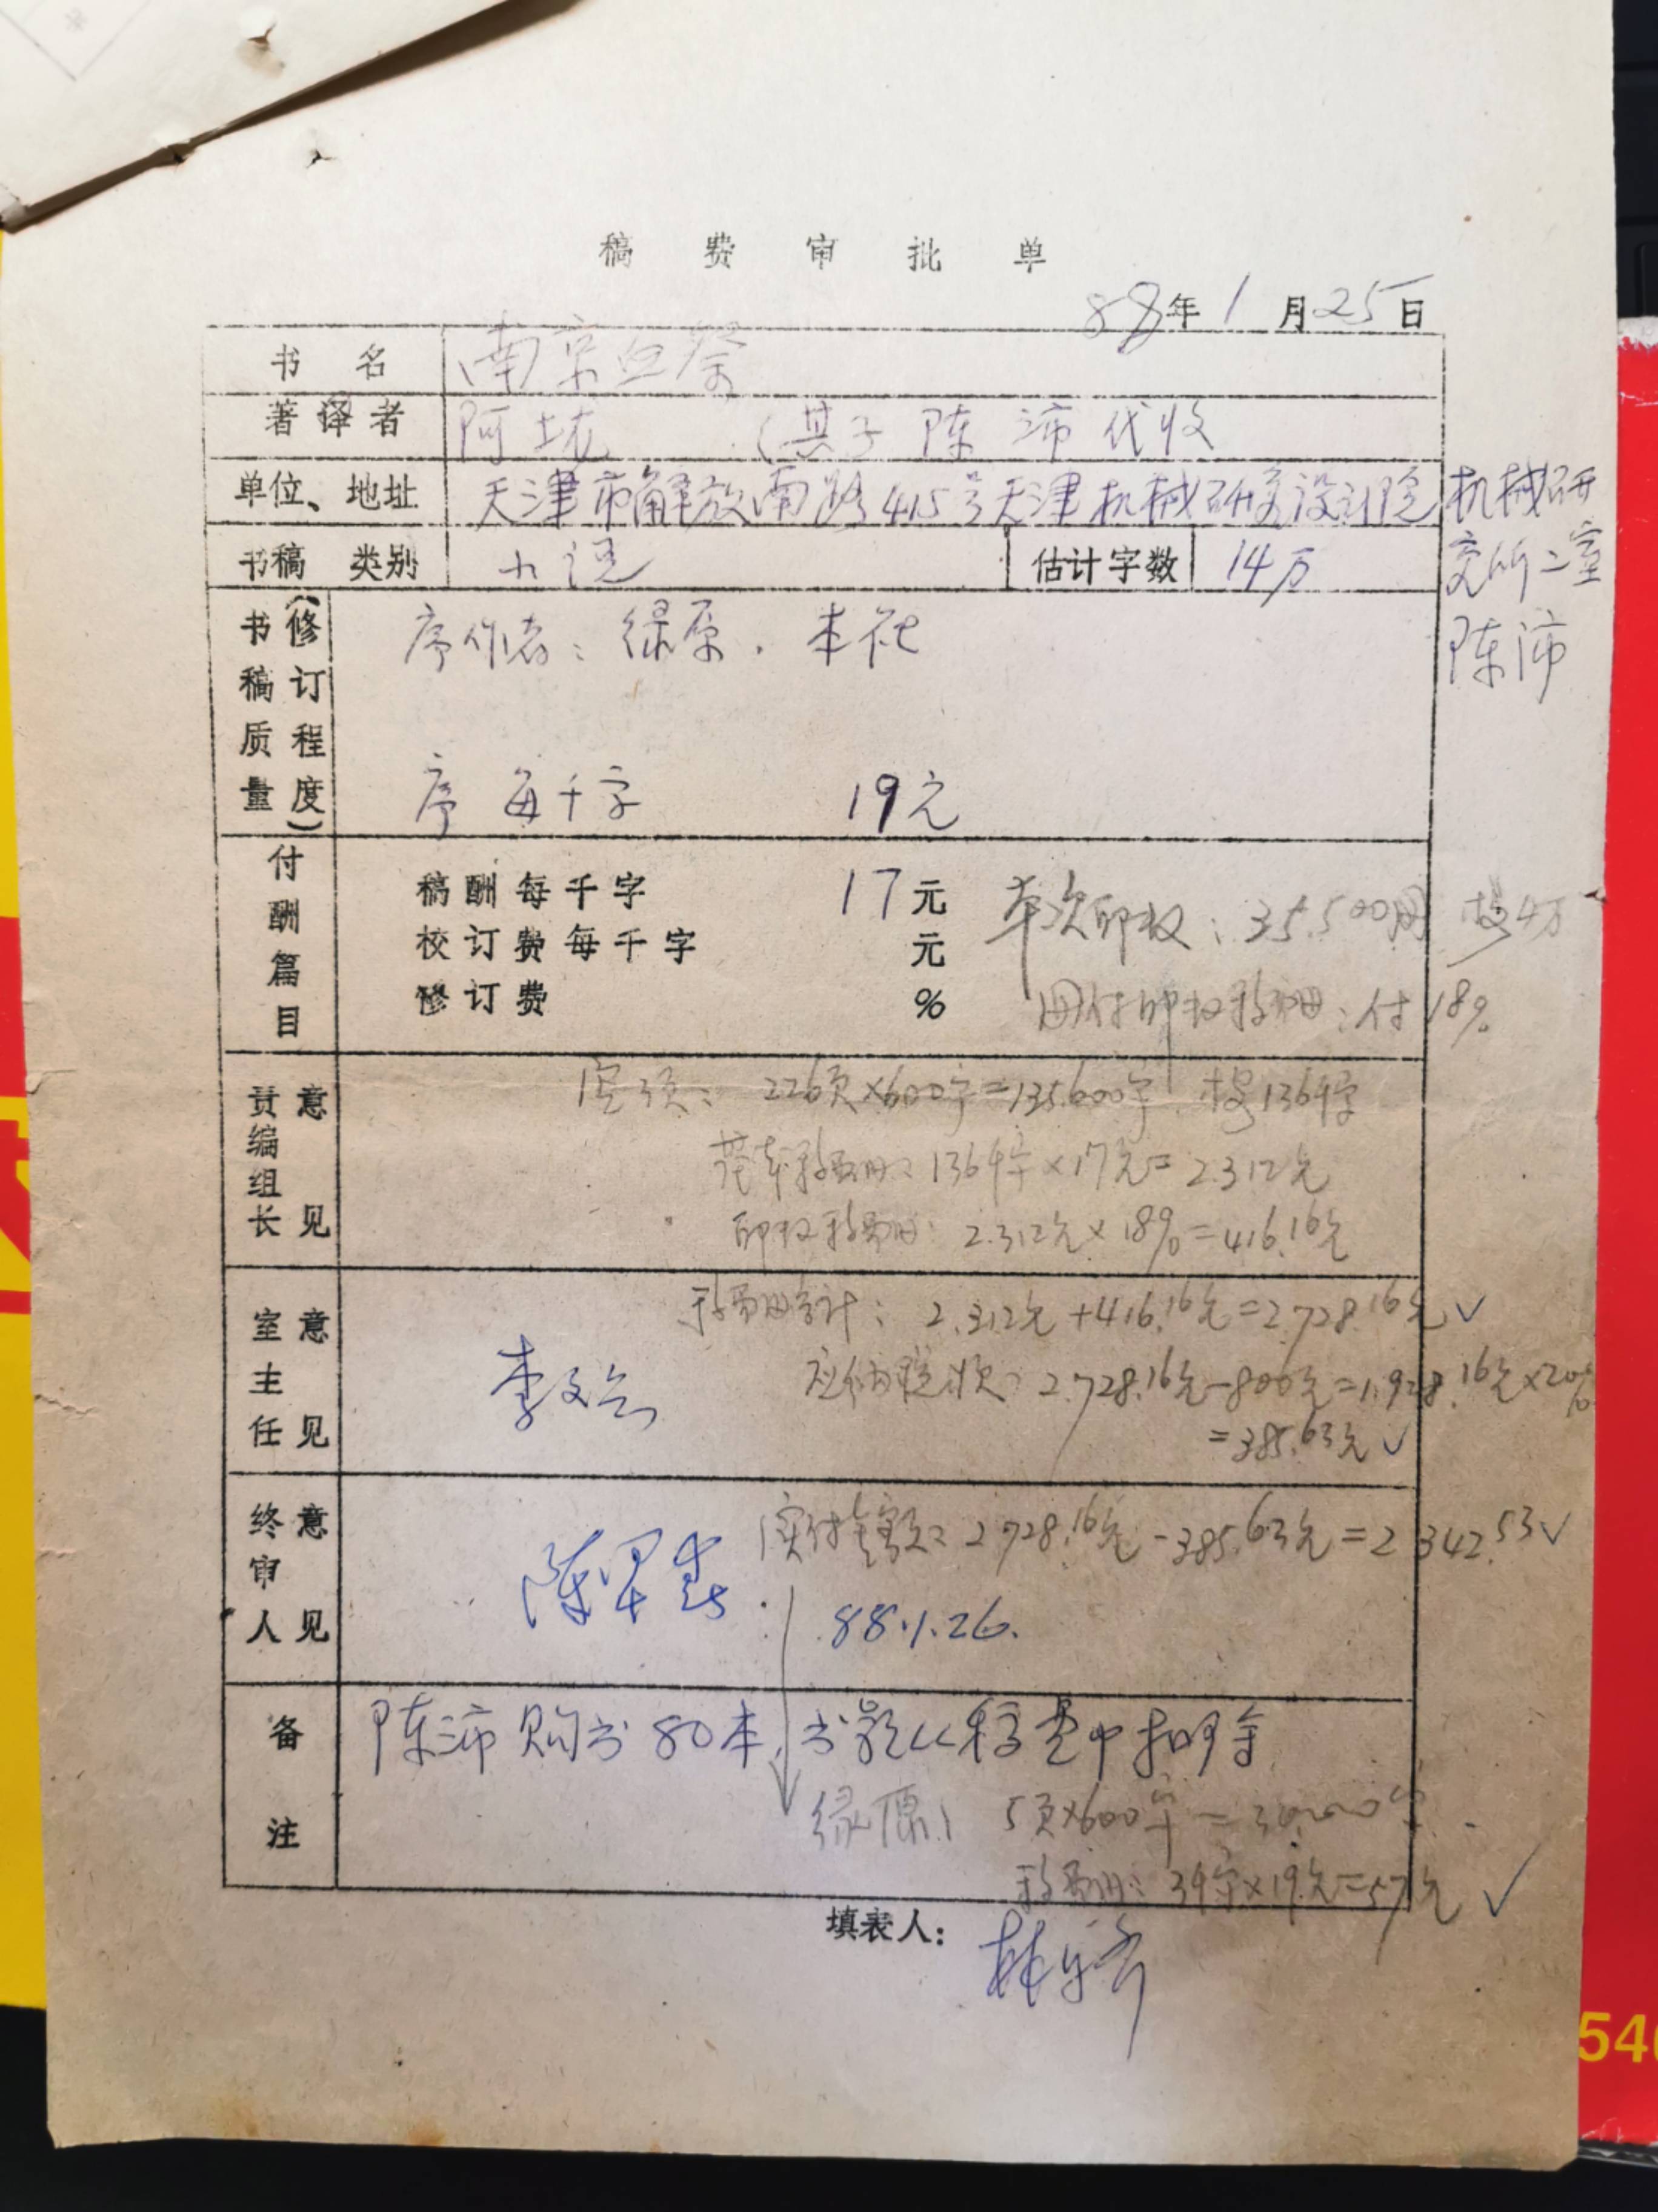 稿费审批单
88年1月25日
书名 南京血祭
著译者 阿垅 (其子陈沛代收
单位、地址 天津市解放南路415号天津机械研究设计院机械研
究所二室
陈沛
书稿类别 小说 估计字数 14万
书稿质量(修订程度)
序作者:绿原.本社
序 每千字 19元
付酬篇目
稿酬每千字 17元
校订费每千字 元
修订费 %
本次印数:35.500册 按4万
册付印数稿酬:付18%
责编组长意见
实页:226页×600字=135.600字 按136千字
基本稿酬:136千字×17元=2.312元
印数稿酬:2.312元×18%=416.16元
室主任意见
稿酬合计:2.312元+416.16元=2.728.16元√
应纳税款:2.728.16元-800元=1.928.16元×20%
=385.63元√
终审人意见
实付金额:2.728.16元-385.63元=2342.53√
陈早春
88.1.26.
备注
陈沛购书80本,书款从稿费中扣除
绿原:5页×600字=
稿酬:3千字×19元=57元√
填表人:
540